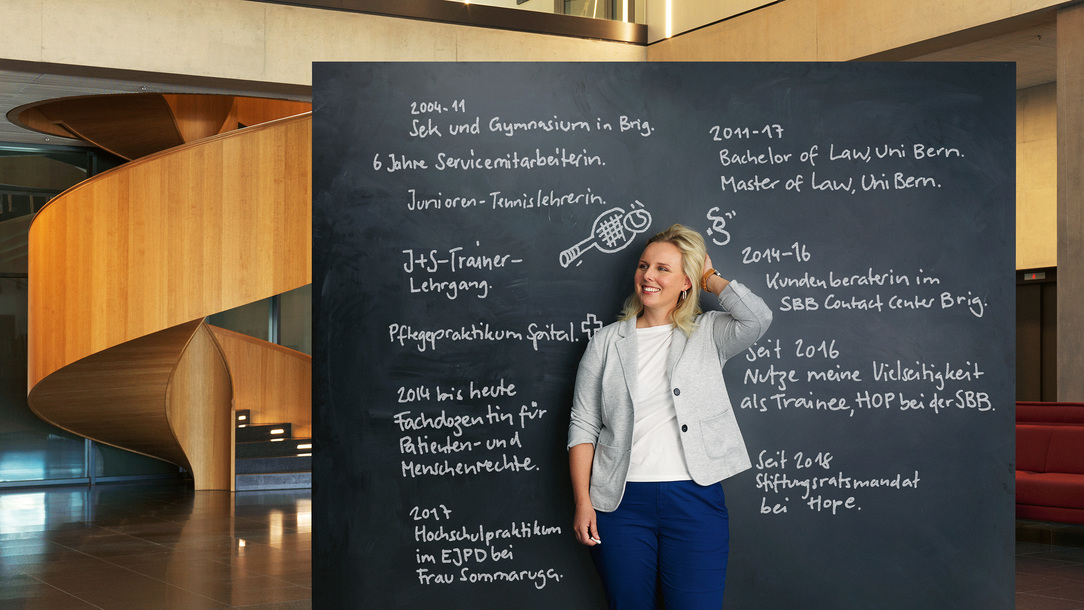 2004-11
Sek und Gymnasium in Brig.
6 Jahre Servicemitarbeiterin.
Junioren-Tennislehrerin.
J+S-Trainer-
Lehrgang.
Pflegepraktikum Spital.
2014 bis heute
Fachdozentin für
Patienten- und
Menschenrechte.
2017
Hochschulpraktikum
im EJPD bei
Frau Sommaruga.
2011-17
Bachelor of Law, Uni Bern.
Master of Law, Uni Bern.
§
2014-16
Kundenberaterin im
SBB Contact Center Brig.
Seit 2016
Nutze meine Vielseitigkeit
als Trainee, HOP bei der SBB.
Seit 2018
Stiftungsratsmandat
bei Hope.